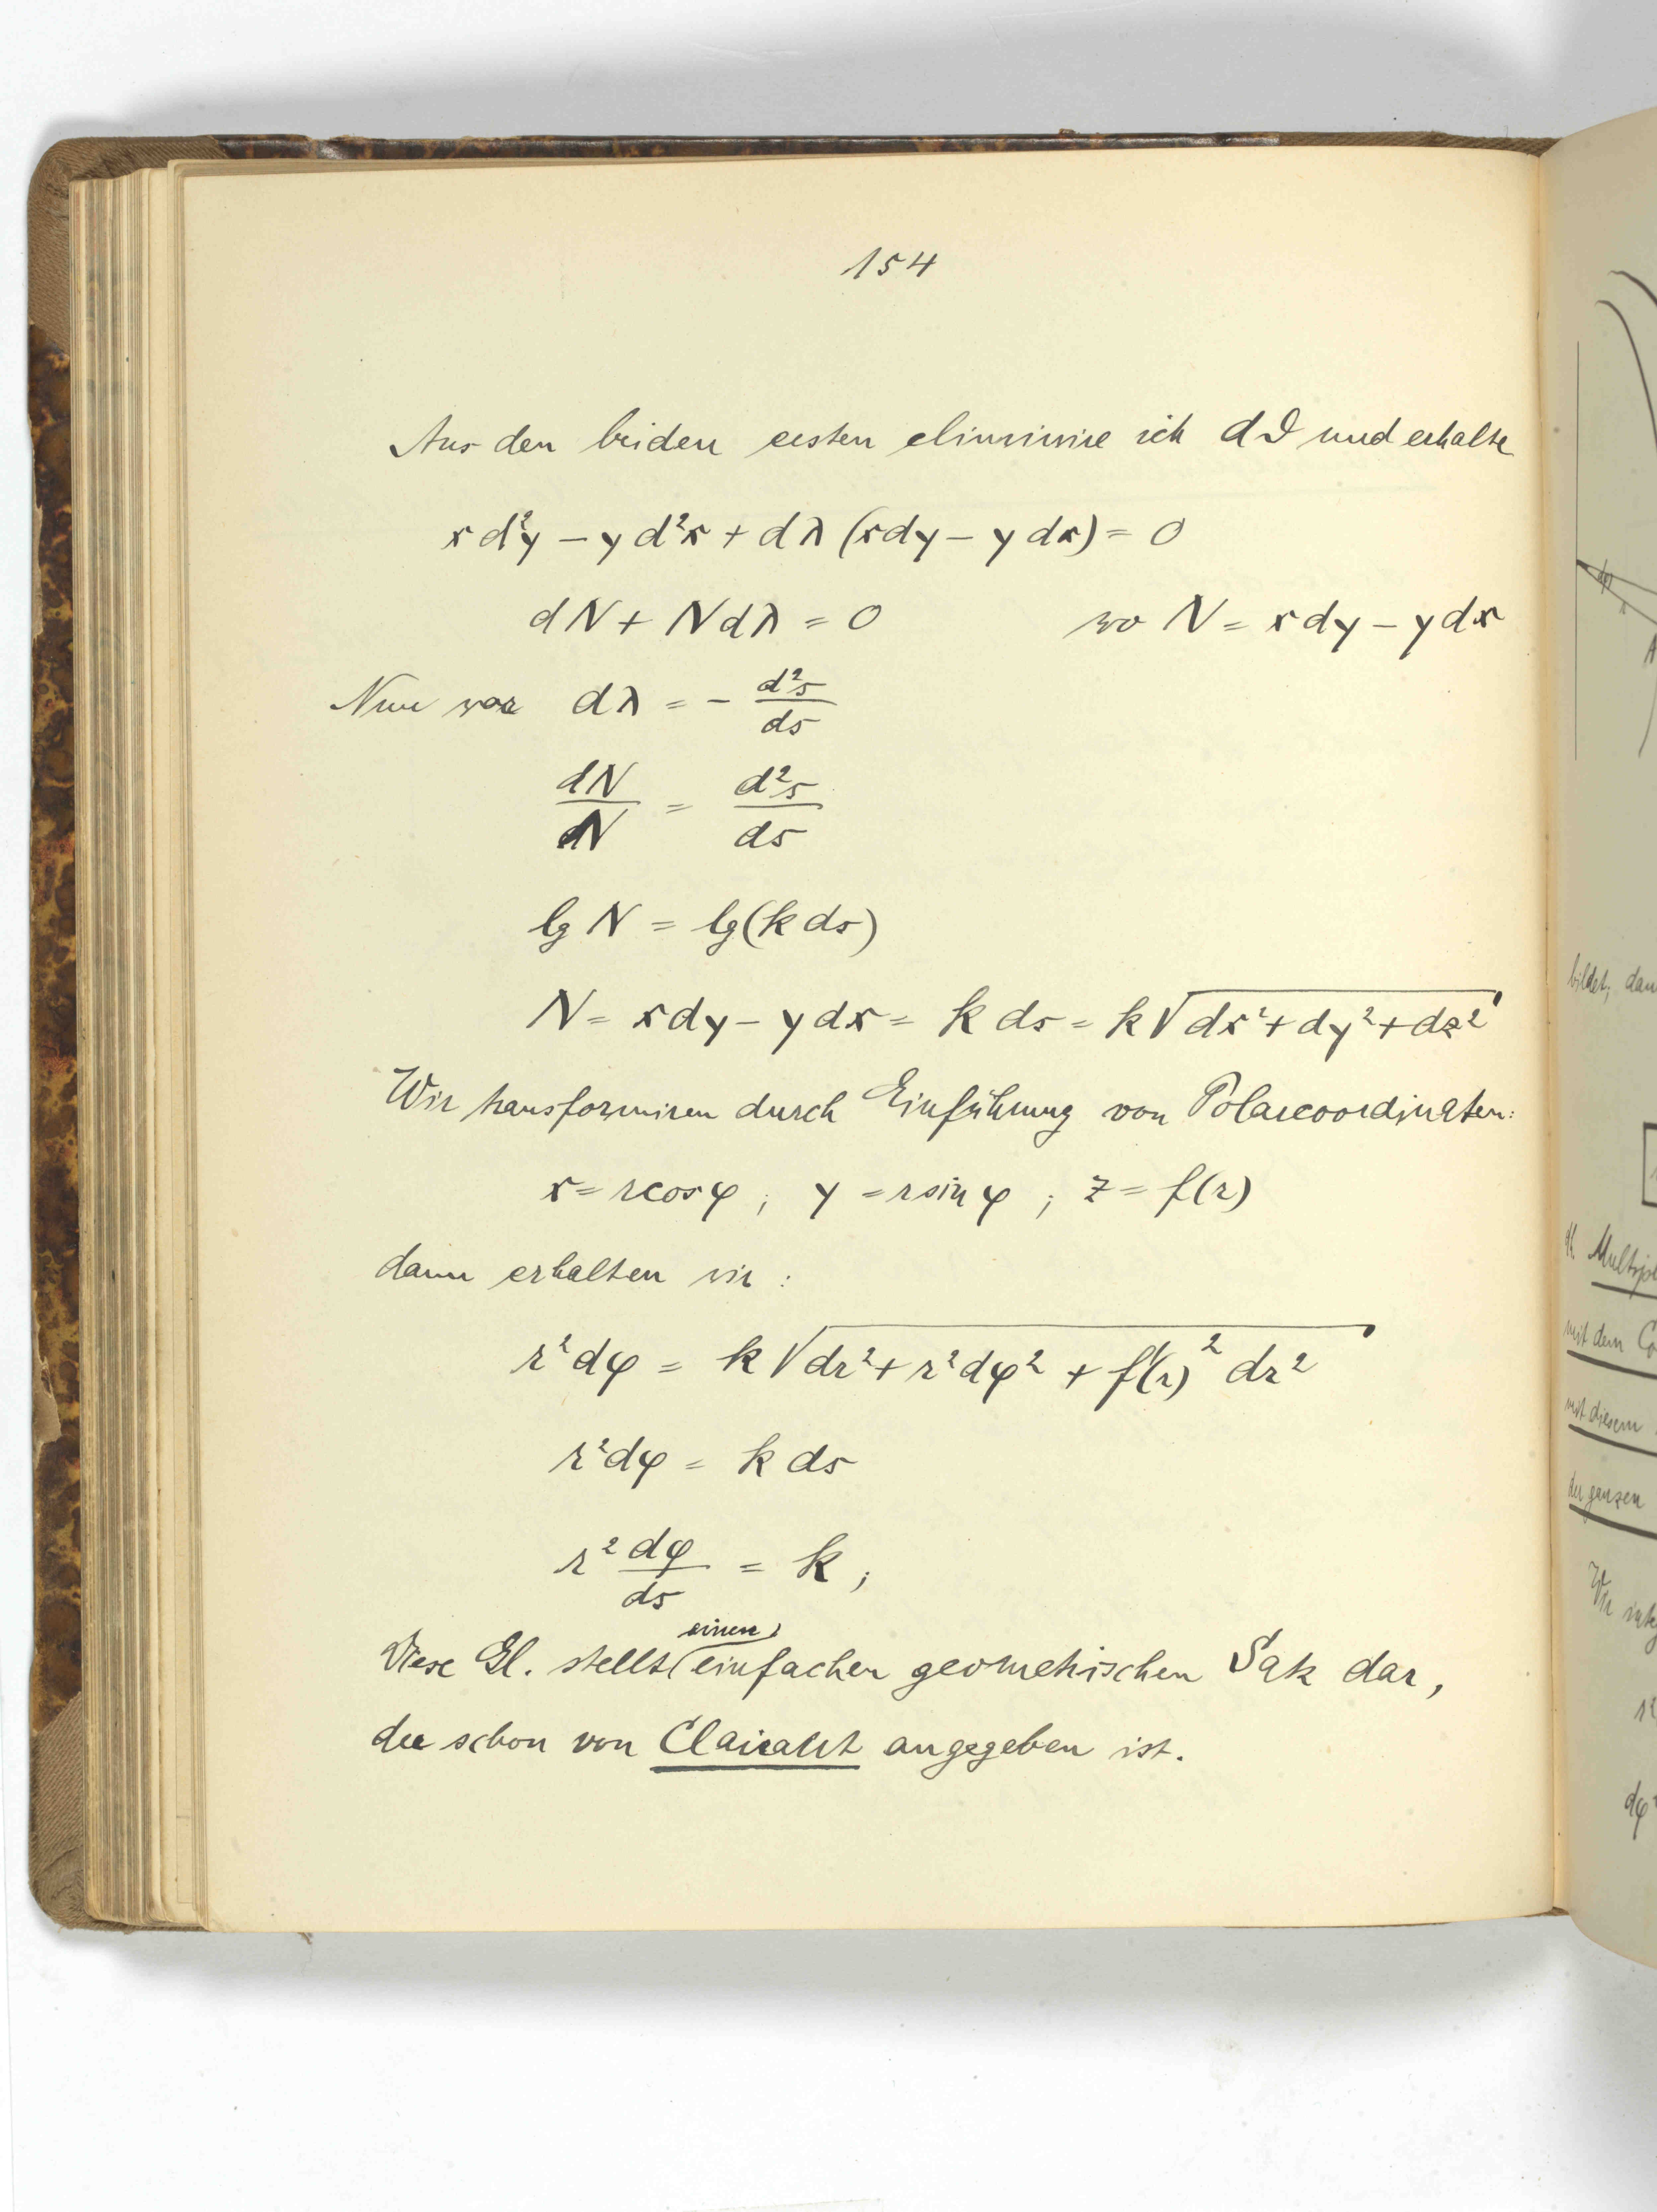 154
Aus den beiden ersten eliminire ich dϑ und erhalte
x d²y − y d²x + dλ (x dy − y dx) = 0
dN + N dλ = 0 wo N = x dy − y dx
Nun war dλ = − d²s/ds
dN/N = d²s/ds
lg N = lg (k ds)
N = x dy − y dx = k ds = k √(dx² + dy² + dz²)
Wir transformiren durch Einführung von Polarcoordinaten:
x = r cos φ ; y = r sin φ ; z = f(r)
dann erhalten wir :
r² dφ = k √(dr² + r² dφ² + f'(r)² dr²)
r² dφ = k ds
r² dφ/ds = k ;
Diese Gl. stellt einen einfachen geometrischen Satz dar,
der schon von Clairaut angegeben ist.
bildet, dan
Multipl
mit dem Co
mit diesem
der ganzen
Wir
dφ